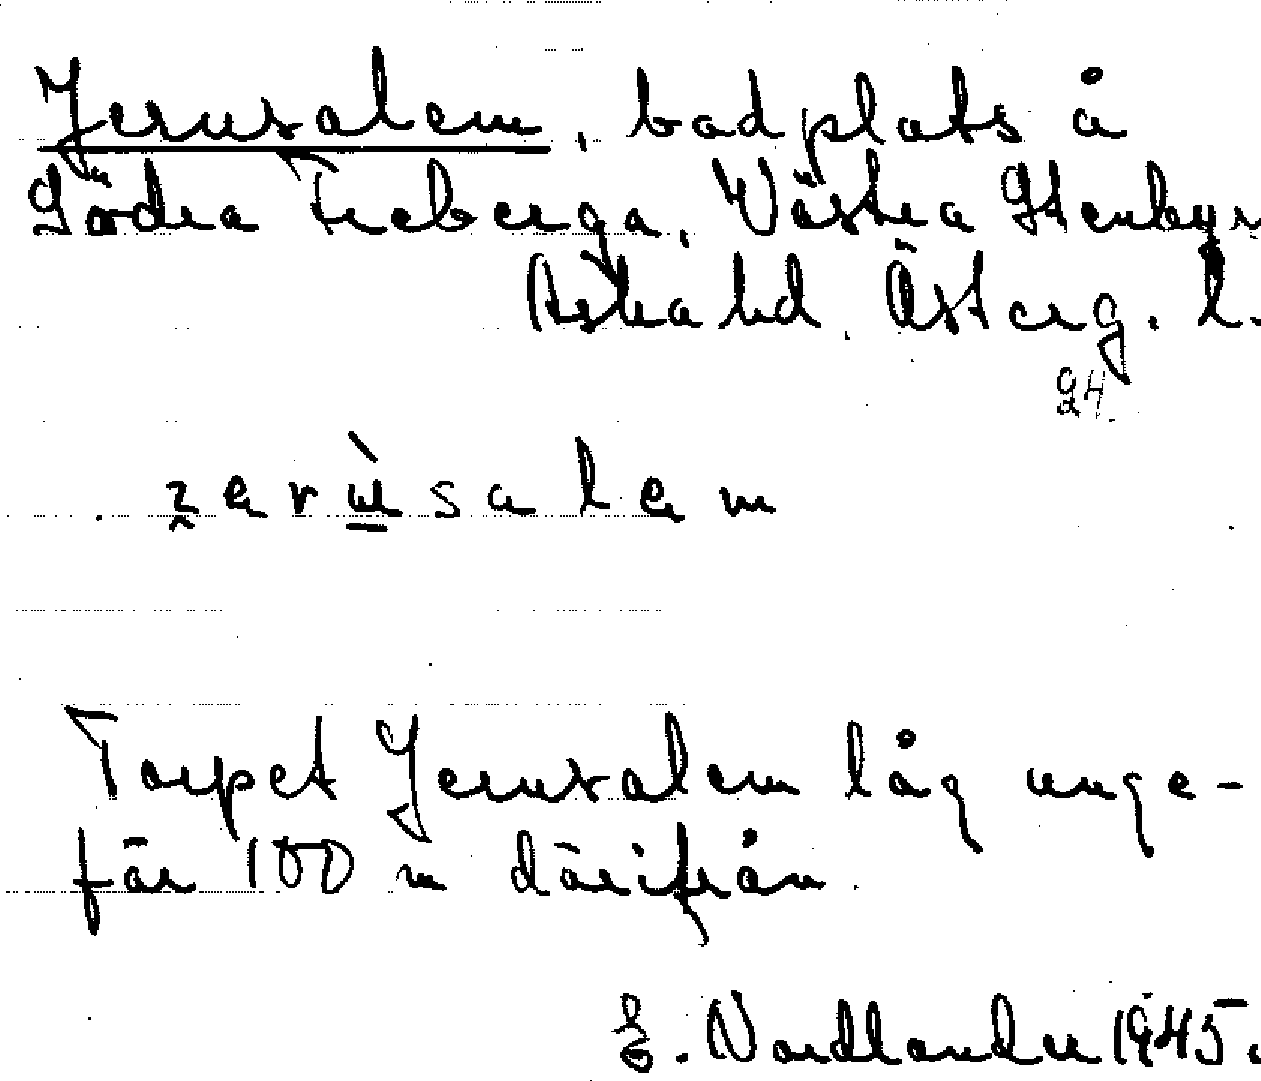 Jerusalem, badplats å
Södra Freberga, Västra Stenby s
Aska hd, Österg. l.
24
zerùsalem
Torpet Jerusalem låg unge-
fär 100 m därifrån.
E. Nordlander 1945.